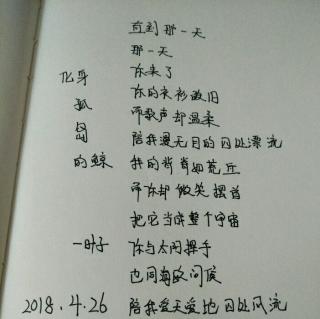 直到那一天
那一天
你来了
你的衣衫破旧
而歌声却温柔
陪我漫无目的四处漂流
我的背脊如荒丘
而你却微笑摆首
把它当成整个宇宙
你与太阳挥手
也同海鸥问候
陪我爱天爱地四处风流
化身孤岛的鲸
一叶子
2018.4.26